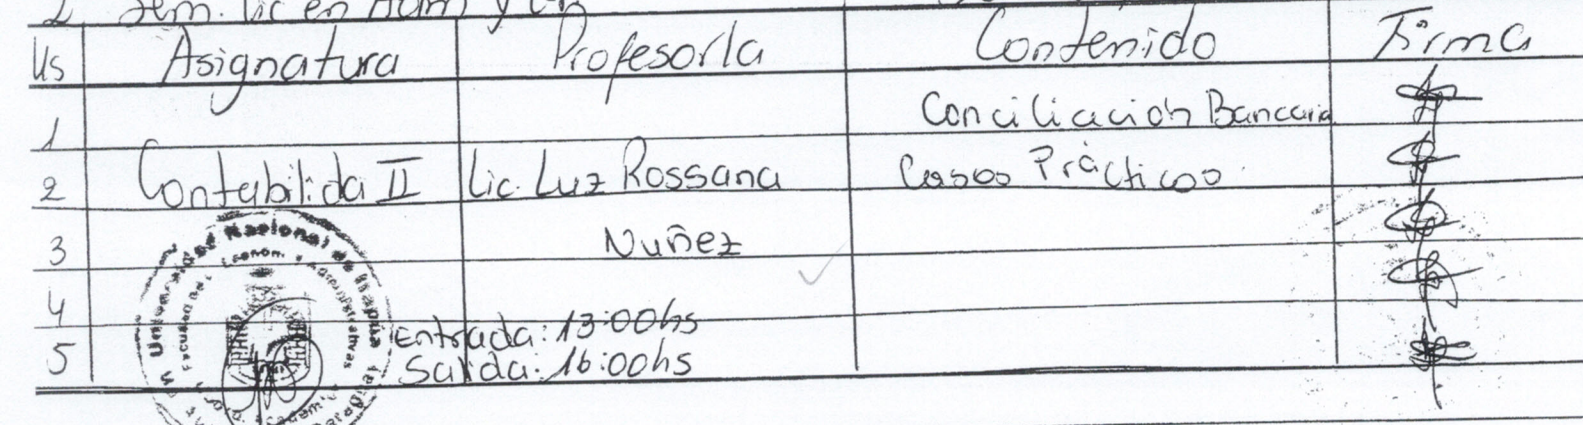 2 Sem. Lic en Adm y
Hs Asignatura Profesor/a Contenido Firma
1 Conciliación Bancaria
2 Contabilida II Lic. Luz Rossana Casos Prácticos
3 Nuñez
4 Entrada: 13:00hs
5 Salida: 16:00hs
Universidad Nacional de Itapúa